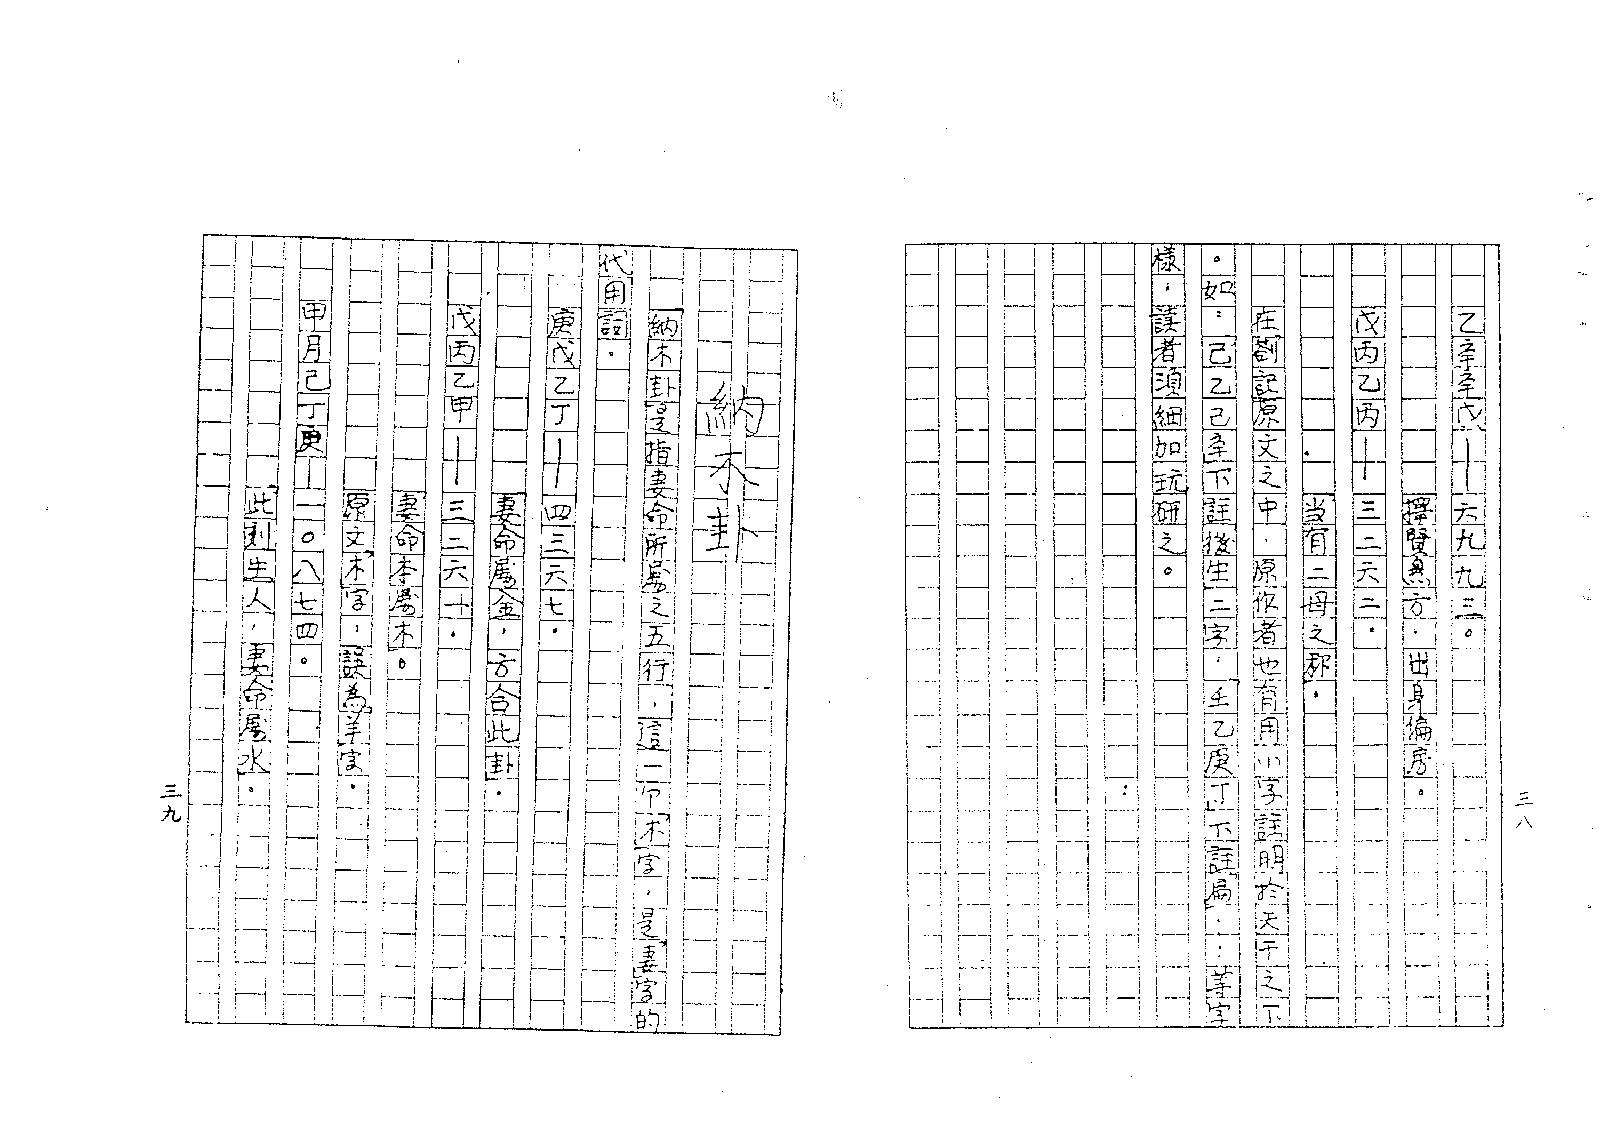 三八
乙辛辛戊——六九九三。
擇賢無方．出身偏房。
戊丙乙丙——三二六二．
当有二母之郡．
在劄記原文之中．原作者也有用小字註明於天干之下
。如：己乙己辛下註後生二字．壬乙庚丁下註扁．．．等字
樣．讀者須細加玩研之。
納木卦
納木卦是指妻命所屬之五行．這一个木字．是妻字的
代用語．
庚戊乙丁——四三六七．
妻命屬金．方合此卦．
戊丙乙甲——三二六十．
妻命本屬木。
原文木字．誤為羊字．
甲月己丁庚——一〇八七四。
此刻生人．妻命屬水．
三九